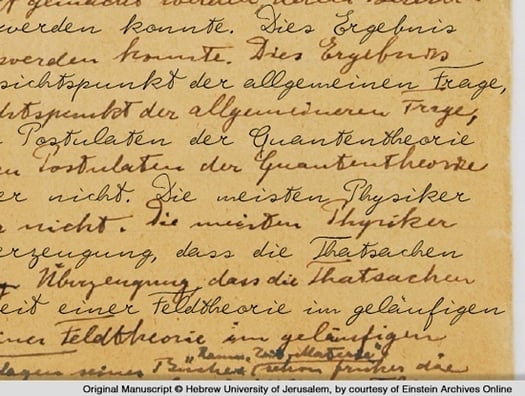 gemacht werden
werden konnte. Dies Ergebnis
werden konnte. Dies Ergebnis
sichtspunkt der allgemeinen Frage,
htspunkt der allgemeineren Frage,
Postulaten der Quantentheorie
en Postulaten der Quantentheorie
er nicht. Die meisten Physiker
r nicht. Die meisten Physiker
erzeugung, dass die Thatsachen
Überzeugung, dass die Thatsachen
eit einer Feldtheorie im geläufigen
einer Feldtheorie im geläufigen
"Raum, Zeit, Materie"
seines Buches (schon früher die
Original Manuscript © Hebrew University of Jerusalem, by courtesy of Einstein Archives Online